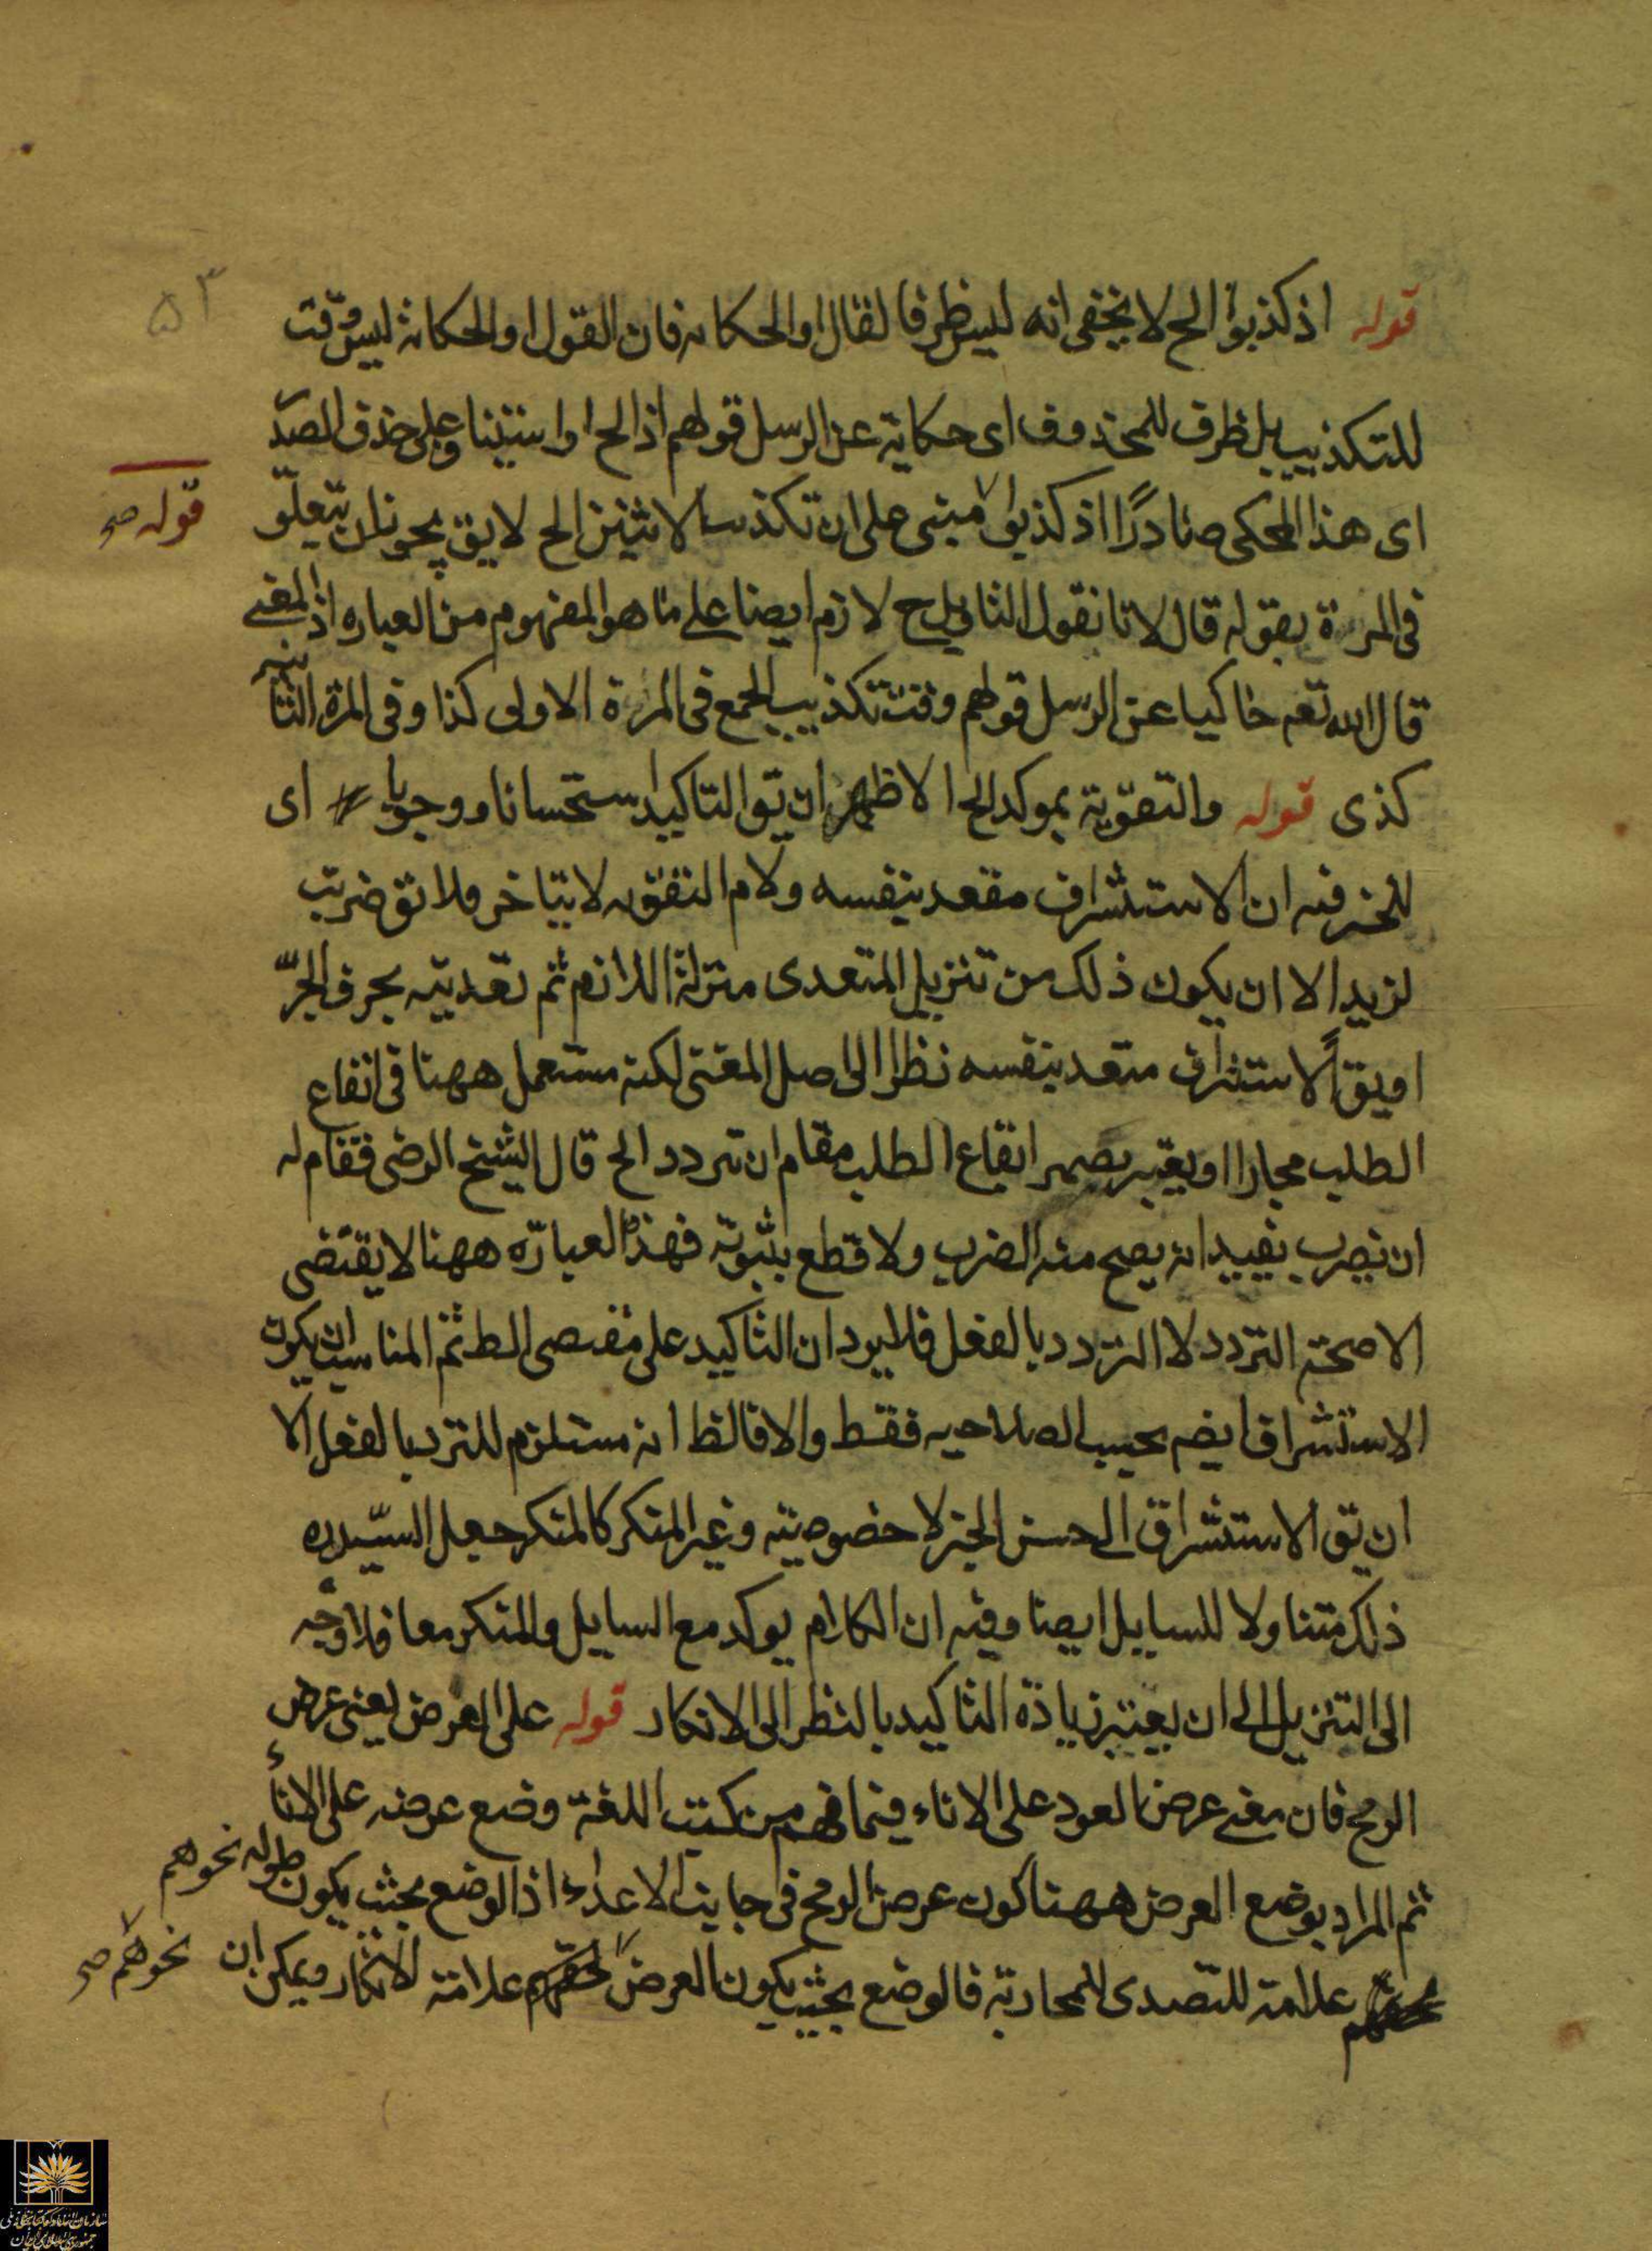 ۵۳
قوله اذ كذبوا الح لا يخفى انه ليس ظرفا لقال او الحكاية فان القول او الحكاية ليس وقت
للتكذيب بل ظرف للمحذوف اى حكاية عن الرسل قولهم اذ الح او استينا وعلى حذف الصد
اى هذا المحكى صادرًا اذ كذبوا مبنى على ان تكذيب الاثنين الح لا يق يجوز ان يتعلق
قوله صح
فى المرة بقوله قال لانا نقول التاويل ح لازم ايضا على ما هو المفهوم من العباره اذ المعنى
قال الله تعم حاكيا عن الرسل قولهم وقت تكذيب الجمع فى المرة الاولى كذا وفى المرة الثانية
كذى قوله والتقوية بموكد الح الاظهر ان يق التاكيد استحسانا ووجوبا اى
للخبر فيه ان الاستشراف متعد بنفسه ولام التقويه لا يتاخر فلا يق ضربت
لزيد الا ان يكون ذلك من تنزيل المتعدى منزلة اللازم ثم تعديته بحرف الجرّ
او يق الاستشراف متعد بنفسه نظرا الى اصل المعنى لكنه مستعمل ههنا فى ايقاع
الطلب مجازا او يعتبر ايقاع الطلب مقام ان تردد الح قال الشيخ الرضى فقام له
ان يضرب يفيد انه يصح منه الضرب ولا قطع بثبوته فهذه العبارة ههنا لا يقتضى
الا صحة التردد لا التردد بالفعل فلا يرد ان التاكيد على مقتضى الط ثم المناسب ان يكون
الاستشراف ايضم بحسب الصلاحيه فقط والا فالظ انه مستلزم للتردد بالفعل الا
ان يق الاستشراف الى جنس الخبر لا خصوصيته وغير المنكر كالمنكر جعل السيّد ره
ذلك متناولا للسايل ايضا وفيه ان الكلام يوكد مع السايل والمنكر معا فلا وجه
الى التنزيل الى ان يعتبر زيادة التاكيد بالنظر الى الانكار قوله على العرض يعنى عرض
الرمح فان معنى عرض العود على الاناء فيما فهم من كتب اللغة وضع عرضه على الاناء
ثم المراد بوضع العرض ههنا كون عرض الرمح فى جانب الاعداء اذ الوضع بحيث يكون طوله نحوهم
علامة للتصدى للمحاربة فالوضع بحيث يكون العرض علامة الانكار ويمكن ان
نحوهم صح